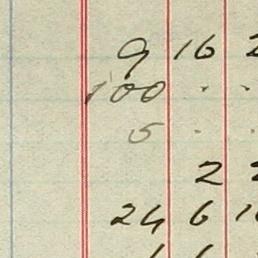 9 16 2
100 . .
5 . .
2 2
24 6 1